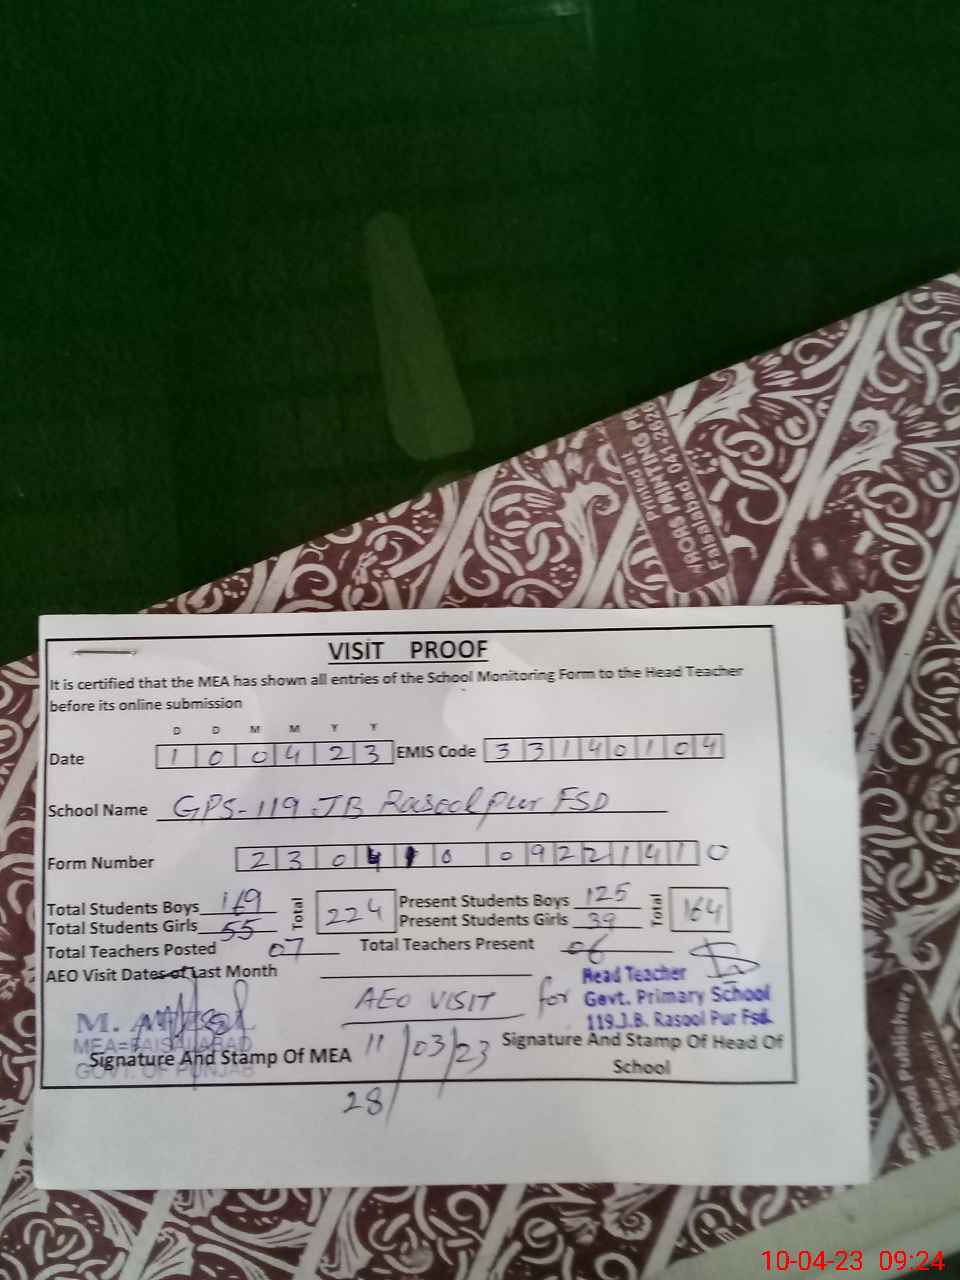 Printed at
RORS PRINTING PR
Faisalabad. 041-2626
VISIT PROOF
It is certified that the MEA has shown all entries of the School Monitoring Form to the Head Teacher
before its online submission
D D M M Y Y
Date 1 0 0 4 2 3 EMIS Code 3 3 1 4 0 1 0 4
School Name GPS-119 JB Rasool pur FSD
Form Number 2 3 0 4 1 0 0 9 2 2 1 4 1 0
Total Students Boys 169 Total 224 Present Students Boys 125 Total 164
Total Students Girls 55 Present Students Girls 39
Total Teachers Posted 07 Total Teachers Present 06
AEO Visit Dates of Last Month
AEO VISIT for Head Teacher
Govt. Primary School
119.J.B. Rasool Pur Fsd.
M.
MEA=FAISALABAD
GOVT. OF PUNJAB
Signature And Stamp Of MEA 11/03/23 Signature And Stamp Of Head Of
School
28
Publishers
10-04-23 09:24